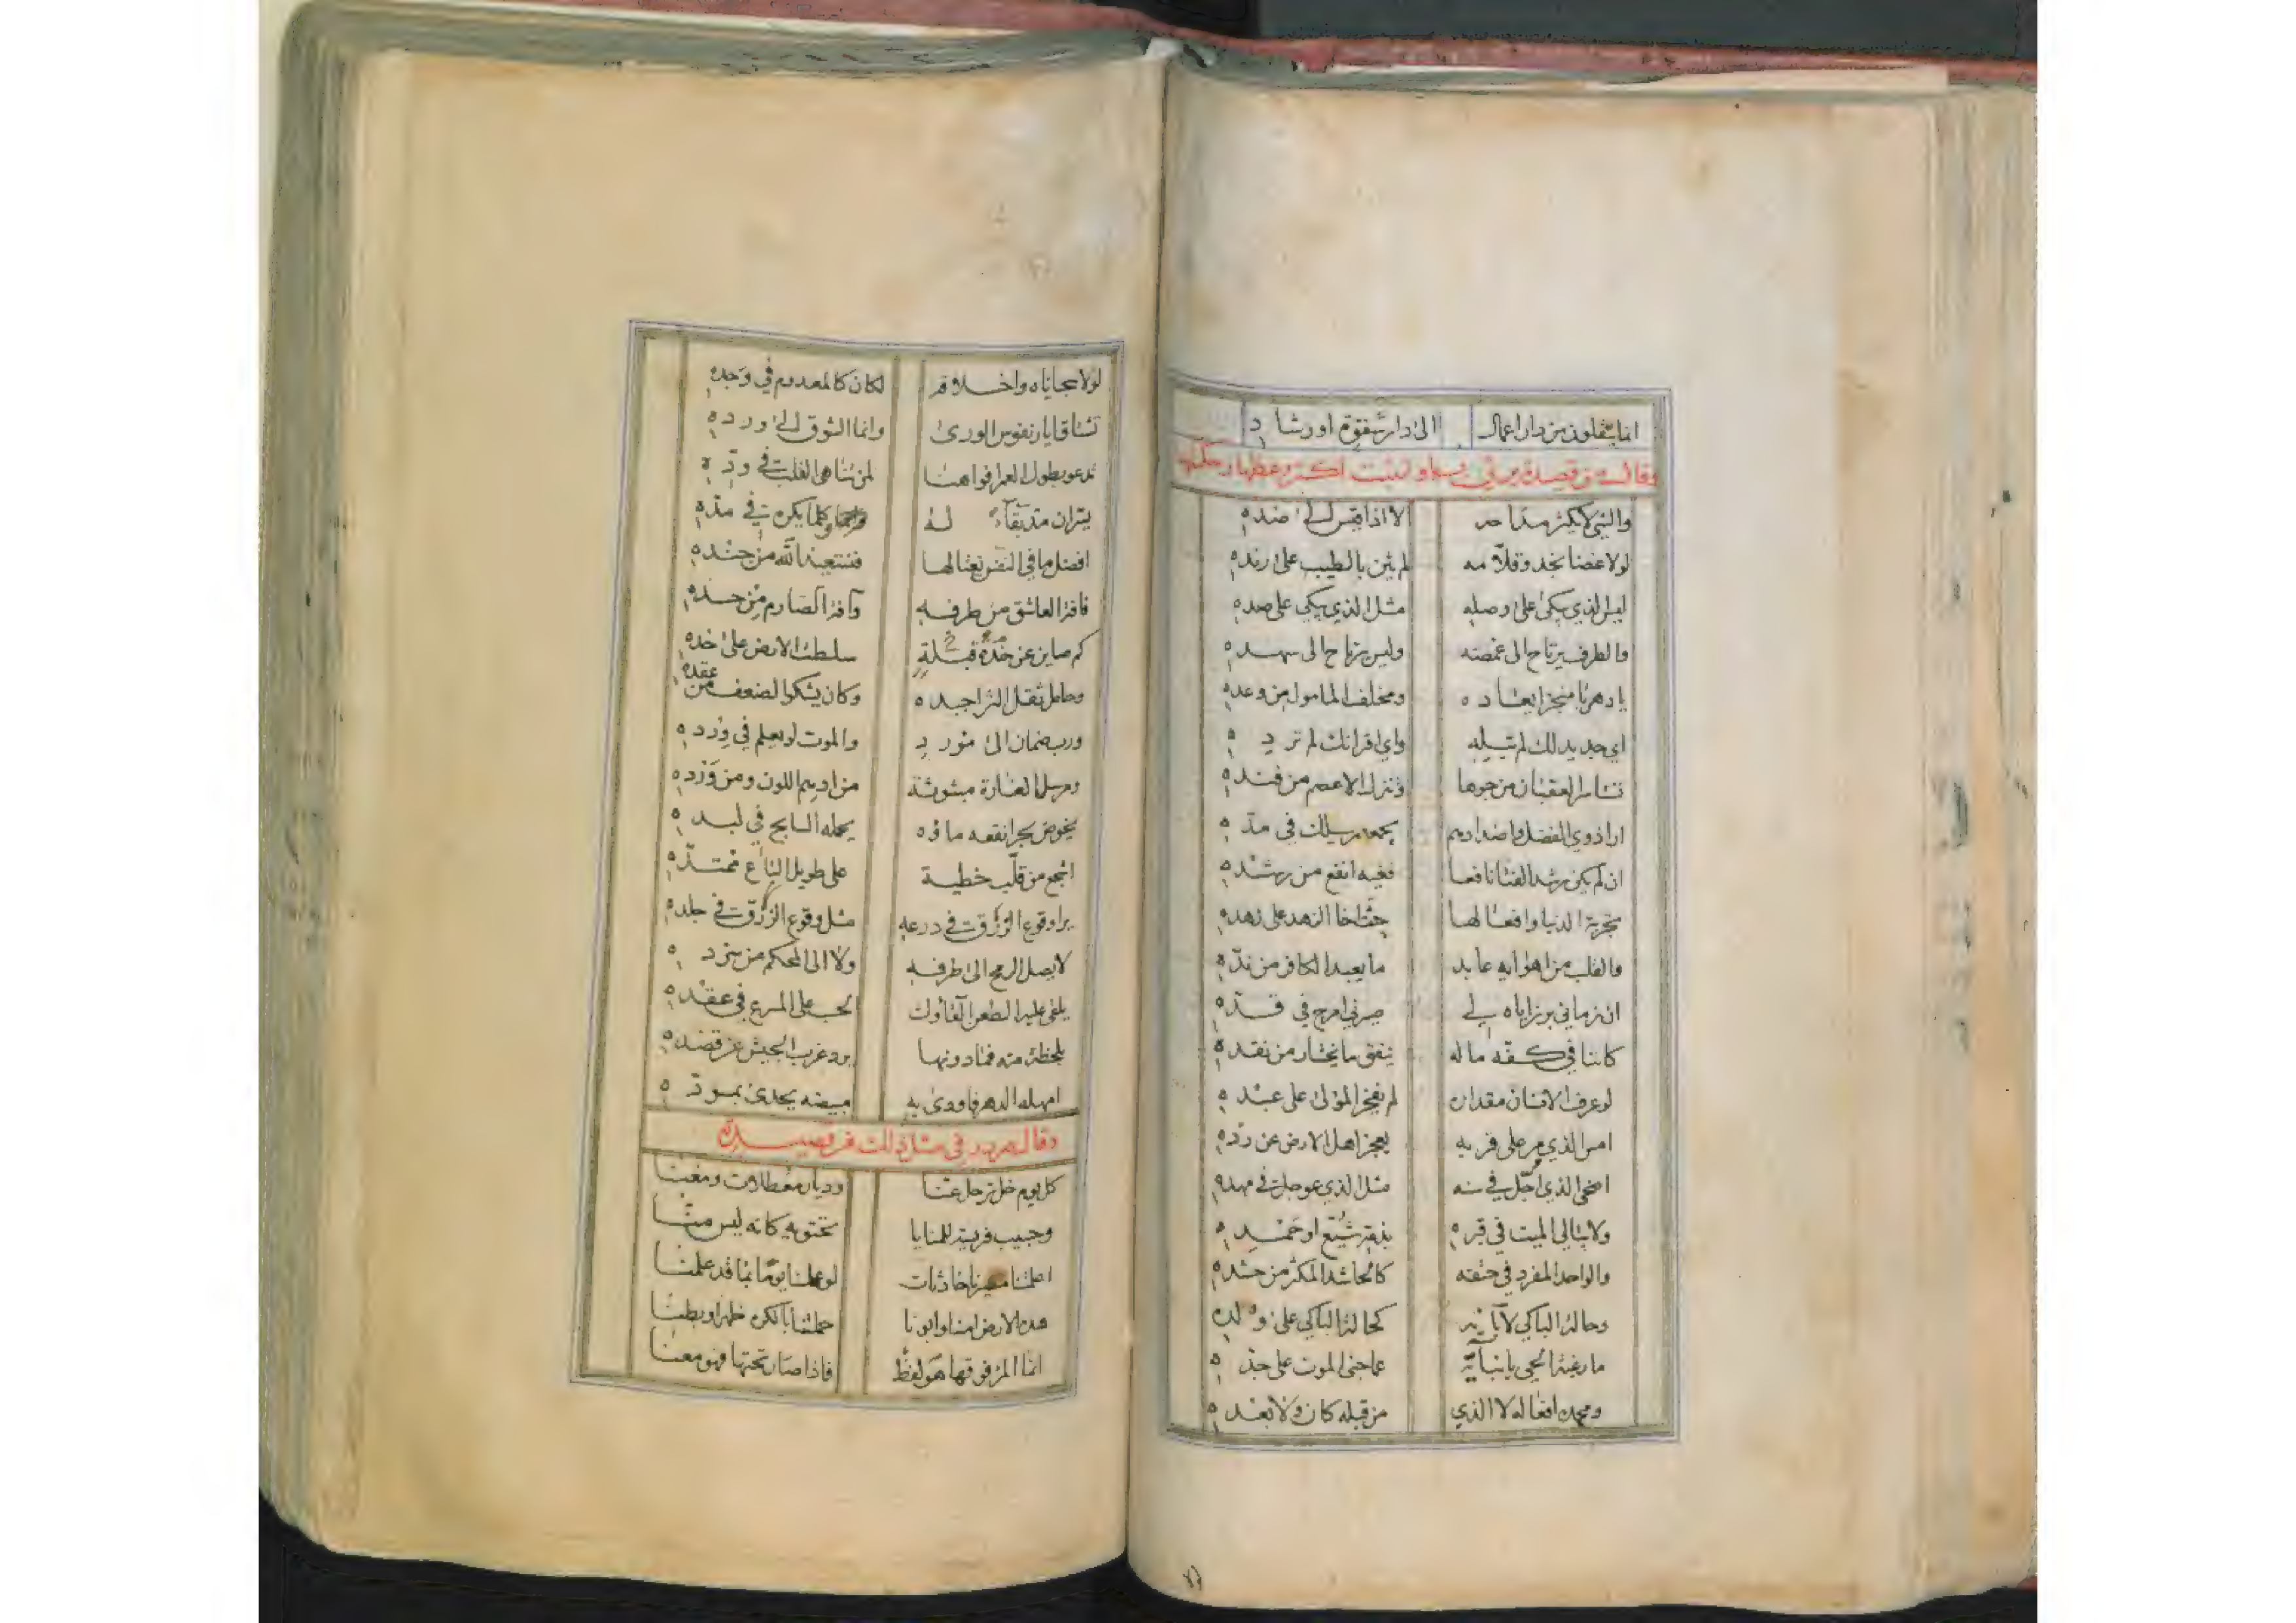 انما ينقلون من دار اعمال الى دار شقوة او رشاد
وقال من قصيدة يرثي
والشي لا يكثر مداحه الا اذا قيس الى ضده
لولا غضا نجد وقلامه لم يثن بالطيب على رنده
ليس الذي يبكي على وصله مثل الذي يبكي على صده
والطرف يرتاح الى غمضه وليس يرتاح الى سهده
يا دهر يا منجز ايعاده ومخلف المامول من وعده
اي جديد لك لم تبله واي اقرانك لم ترده
تستاسر العقبان من جوها وتنزل الاعصم من فنده
ارا ذوي الفضل واضدادهم يجمعهم سيلك في مده
ان لم يكن رشد الفتا نافعا فغيه انفع من رشده
تجربة الدنيا وافعالها حثت اخا الزهد على زهده
والقلب من اهوايه عابد ما يعبد الكافر من نده
ان زماني برزاياه لي صيرني امرح في قده
كاننا في كفه ماله ينفق ما يختار من نقده
لو عرف الانسان مقداره لم يفخر المولى على عبده
امس الذي مر على قربه يعجز اهل الارض عن رده
اضحى الذي اجل في سنه مثل الذي عوجل في مهده
ولا يبالي الميت في قبره بذمه شيع او حمده
والواحد المفرد في حتفه كالحاشد المكثر من حشده
وحالة الباكي لآبائه كحالة الباكي على ولده
ما رغبة الحي بابنائه عما جنى الموت على جده
ومجده افعاله لا الذي من قبله كان ولا بعده
لولا سجاياه واخلاقه لكان كالمعدوم في وجده
تشتاق ايار نفوس الورى وانما الشوق الى ورده
تدعو بطول العمر افواهنا لمن تناهى القلب في وده
يسر ان مد بقاء له وكلما يكره في مده
افضل ما في النفس يغتالها فنستعيذ الله من جنده
فآفة العاشق من طرفه وآفة الصارم من حده
كم صاين عن قبلة خده سلطت الارض على خده
وحامل ثقل الثرا جيده وكان يشكو الضعف من عقده
ورب ضمان الى مورد والموت لو يعلم في ورده
ومرسل الغارة مبثوثة من ادهم اللون ومن ورده
يخوض بحرا نقعه ماؤه يحمله السابح في لبده
اشجع من قلب خطية على طويل الباع ممتده
يرا وقوع الزرق في درعه مثل وقوع الزرق في جلده
لا يصل الرمح الى طرفه ولا الى المحكم من سرده
يلقى عليه الطعن القاؤك الحب على المسرع في عقده
بلحظة منه فما دونها يرد غرب الجيش عن قصده
امهله الدهر فاودى به مبيضه يحدى بمسوده
وقال صردر في مثل ذلك من قصيدة
كل يوم خل ترحل عنا وديار معطلات ومغنا
وحبيب فريسة للمنايا نحتويه كانه ليس منا
لو علمنا يوما بما قد علمنا
هذه الارض امنا وابونا حملتنا بالكره ظهرا وبطنا
انما المرء فوقها هو لفظ فاذا صار تحتها فهو معنا